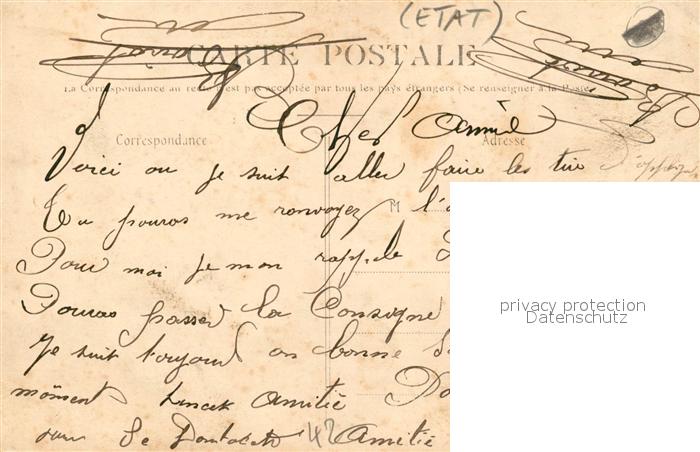 (ETAT)
CARTE POSTALE
La Correspondance au recto n'est pas acceptée par tous les pays étrangers (Se renseigner à la Poste)
Cher Amie
Correspondance
Adresse
Voici ou je suit aller faire les tir
Tu pouras me ronvoyez
M
Pour moi je mon rappele
Pouras passer la Consigne
Je suit toujour en bonne
moment Amitié
Se Amitié
42
privacy protection
Datenschutz